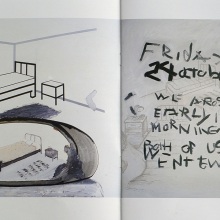 FRIDA
24 OCTOB
WE ARE
EARLY I
MORNING
BOTH OF US
WENT EW